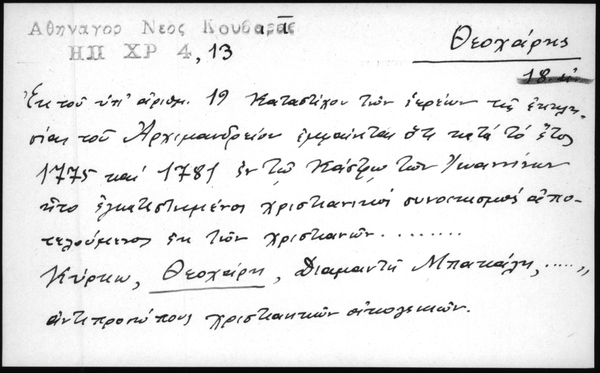 Αθηναγορ Νεος Κουβαρας Α̅
ΗΠ ΧΡ 4, 13
Θεοχάρης
18
Ἐκ τοῦ ὑπ' ἀριθμ. 19 Καταστίχου τῶν ἱερέων τῆς ἐκκλη-
σίας τοῦ Ἀρχιμανδρείου ἐμφαίνεται ὅτι κατά τό ἔτος
1775 καί 1781 ἐν τῷ Κάστρῳ τῶν Ἰωαννίνων
ἦτο ἐγκατεστημένος χριστιανικός συνοικισμός ἀπο-
τελούμενος ἐκ τῶν χριστιανῶν ........
Κύρκω, Θεοχάρη, Διαμαντῆ Μπακάλη, ....,,
ἀντιπροσώπους χριστιανικῶν οἰκογενειῶν.